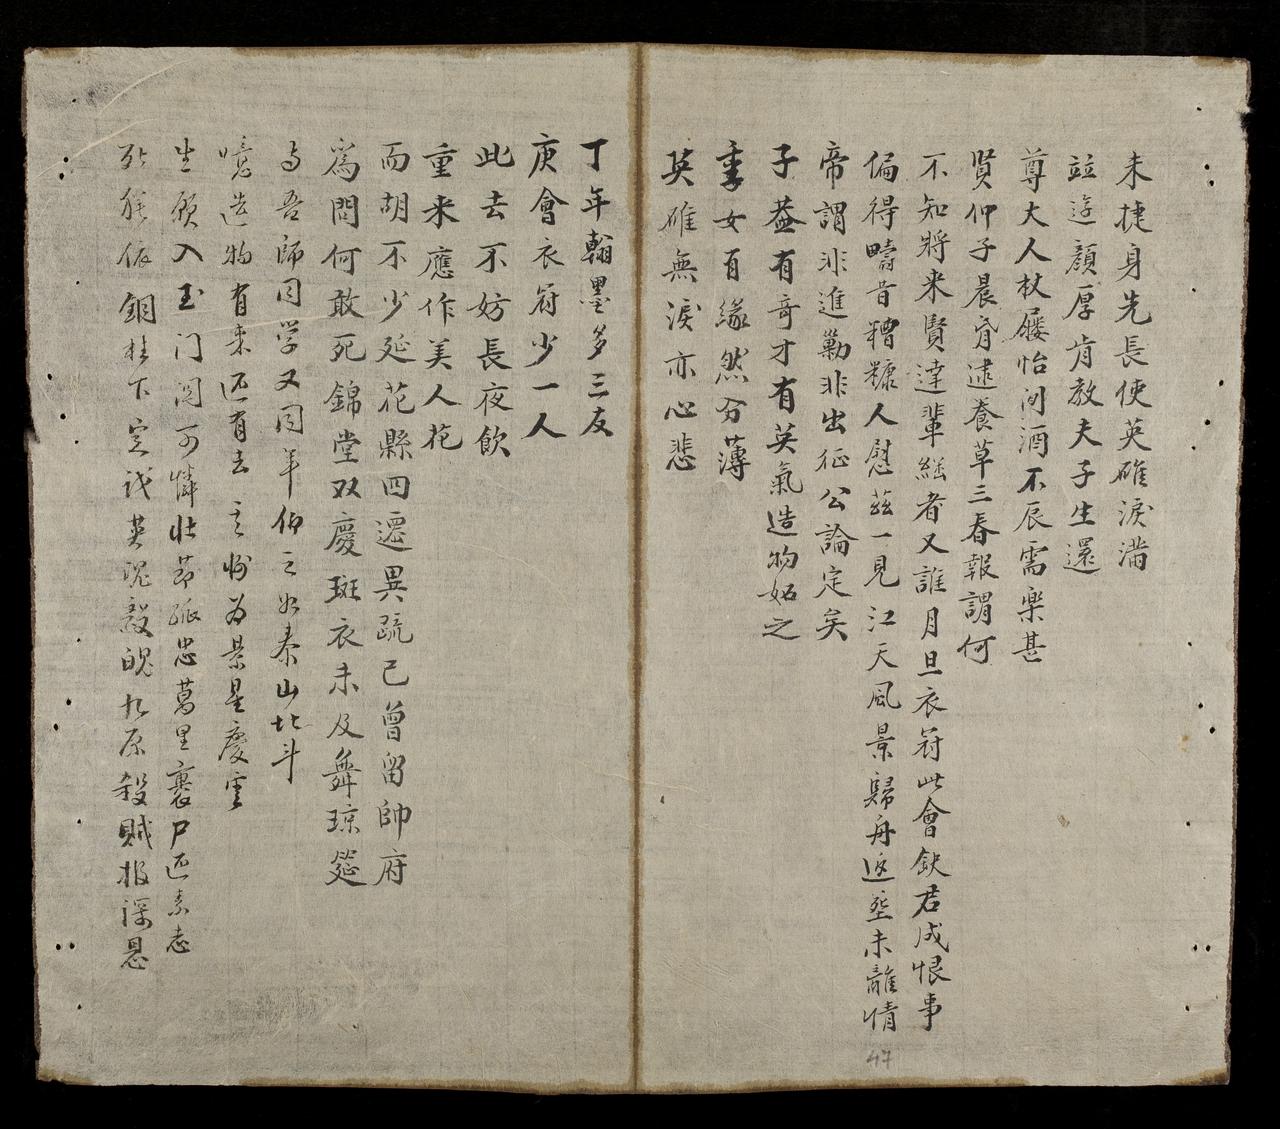 未捷身先長使英碓淚滿
竝遊顔厚肯教夫子生還
尊大人杖屨怡閑酒不辰需樂甚
賢仰子晨昏逮養草三春報謂何
不知將来賢達輩継者又誰月旦衣冠此會欽君成恨事
偏得疇昔糟糠人慰茲一見江天風景歸舟返塋未離情
帝謂非進勦非出征公論定矣
子蓋有奇才有英氣造物妬之
季女有緣然分薄
英碓無淚亦心悲
丁年翰墨多三友
庚會衣冠少一人
此去不妨長夜飲
重来應作美人花
而胡不少延花縣四遷異疏已曾留帥府
爲問何敢死錦堂双慶斑衣未及舞琼筵
与吾師同学又同年仰之如泰山北斗
噫造物有来还有去言州为景星慶雲
生願入玉门関可憐壮节孤忠萬里裹尸还素志
死猶依銅柱下定識英魂毅魄九原殺賊报深恩
47